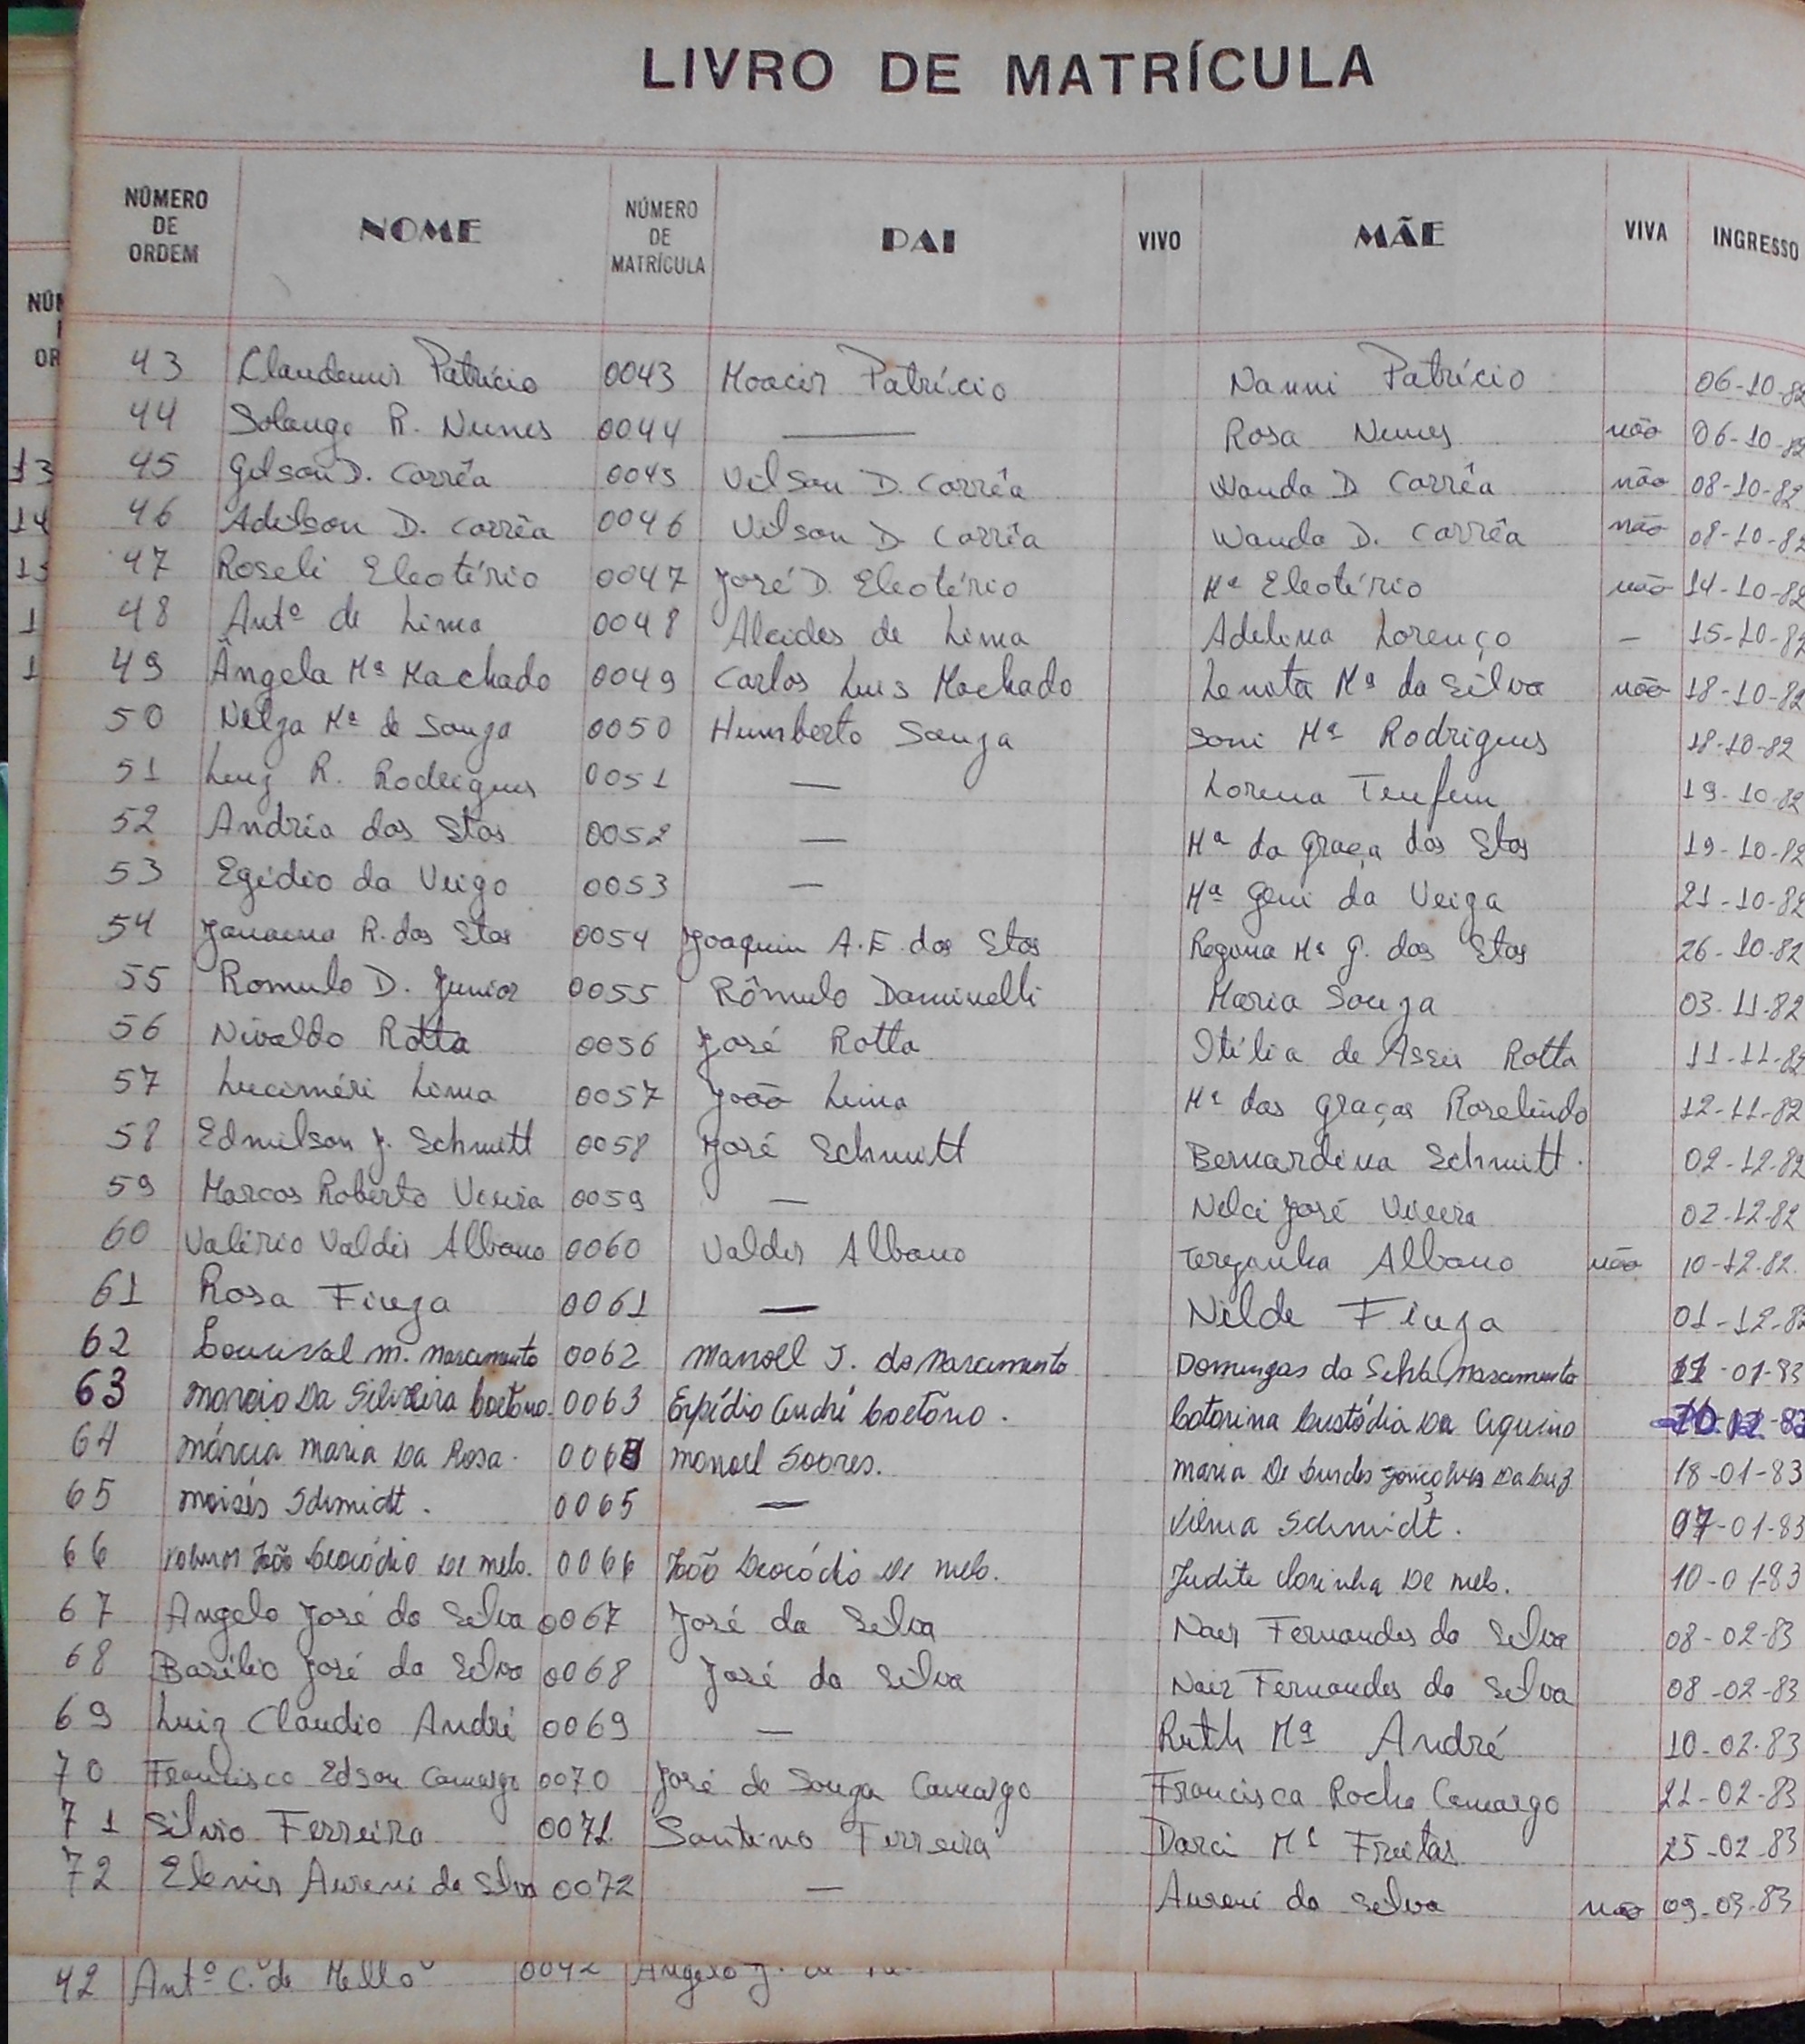 LIVRO DE MATRÍCULA
NÚMERO DE ORDEM NOME NÚMERO DE MATRÍCULA PAI VIVO MÃE VIVA INGRESSO
43 Claudemir Patrício 0043 Moacir Patrício Nanni Patrício 06-10-82
44 Solange R. Nunes 0044 — Rosa Nunes não 06-10-82
45 Gelson D. Corrêa 0045 Vilson D. Corrêa Wanda D Corrêa não 08-10-82
46 Adilson D. Corrêa 0046 Vilson D. Corrêa Wanda D. Corrêa não 08-10-82
47 Roseli Eleotério 0047 José D. Eleotério Mª Eleotério não 14-10-82
48 Antº de Lima 0048 Alcides de Lima Adelina Lorenço — 15-10-82
49 Ângela Mª Machado 0049 Carlos Luis Machado Lenita Mª da Silva não 18-10-82
50 Nelza Mª de Souza 0050 Humberto Souza Soni Mª Rodrigues 18-10-82
51 Luiz R. Rodrigues 0051 — Lorena 19-10-82
52 Andréa dos Stos 0052 — Mª da Graça dos Stos 19-10-82
53 Egídio da Veiga 0053 — Mª Geni da Veiga 21-10-82
54 Janaina R. dos Stos 0054 Joaquim A. E. dos Stos Regina Mª G. dos Stos 26-10-82
55 Romulo D. Junior 0055 Rômulo Daminelli Maria Souza 03-11-82
56 Nivaldo Rotta 0056 José Rotta Itília de Assis Rotta 11-11-82
57 Luciméri Lima 0057 João Lima Mª das Graças Roselindo 12-11-82
58 Edmilson J. Schmitt 0058 José Schmitt Bernardina Schmitt. 02-12-82
59 Marcos Roberto Vieira 0059 — Nelci José Vieira 02-12-82
60 Valério Valdir Albano 0060 Valdir Albano Terezinha Albano não 10-12-82.
61 Rosa Fiuza 0061 — Nilde Fiuza 01-12-82
62 Lourival M. Nascimento 0062 Manoel J. do Nascimento Domingas da Silva Nascimento 11-01-83
63 Marcio Da Silveira Caetano. 0063 Expídio André Caetano. Catarina Custódia Da Aquino
64 Márcia Maria Da Rosa. 0064 Manoel Soares. Maria De Lurdes Gonçalves Da Luz 18-01-83
65 Moisés Schmidt. 0065 — Vilma Schmidt. 07-01-83
66 João Leocódio De Melo. 0066 João Leocódio De Melo. Judite Marinha De Melo. 10-01-83
67 Angelo José da Silva 0067 José da Silva Nair Fernandes da Silva 08-02-83
68 Basílio José da Silva 0068 José da Silva Nair Fernandes da Silva 08-02-83
69 Luiz Claudio André 0069 — Ruth Mª André 10-02-83
70 Francisco Edson Camargo 0070 José de Souza Camargo Francisca Rocha Camargo 21-02-83
71 Silvio Ferreira 0071 Santino Ferreira Darci Mª Freitas 25-02-83
72 Elenir Aureni da Silva 0072 — Aureni da Silva não 09-03-83
42 Antº C. de Mello 0042 Angelo J.